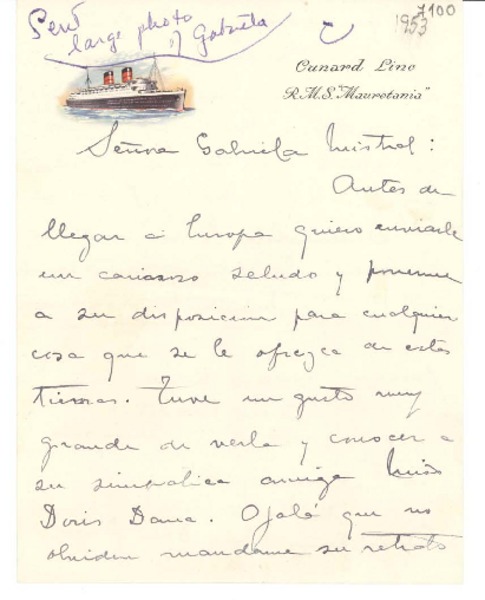 Send
large photo
of Gabriela
1953
7100
Cunard Line
R.M.S. "Mauretania"
Señora Gabriela Mistral:
Antes de
llegar a Europa quiero enviarle
un cariñoso saludo y ponerme
a su disposicion para cualquier
cosa que se le ofrezca de estas
tierras. Tuve un gusto muy
grande de verla y conocer a
su simpatica amiga Miss
Doris Dana. Ojalá que no
olviden mandarme su retrato